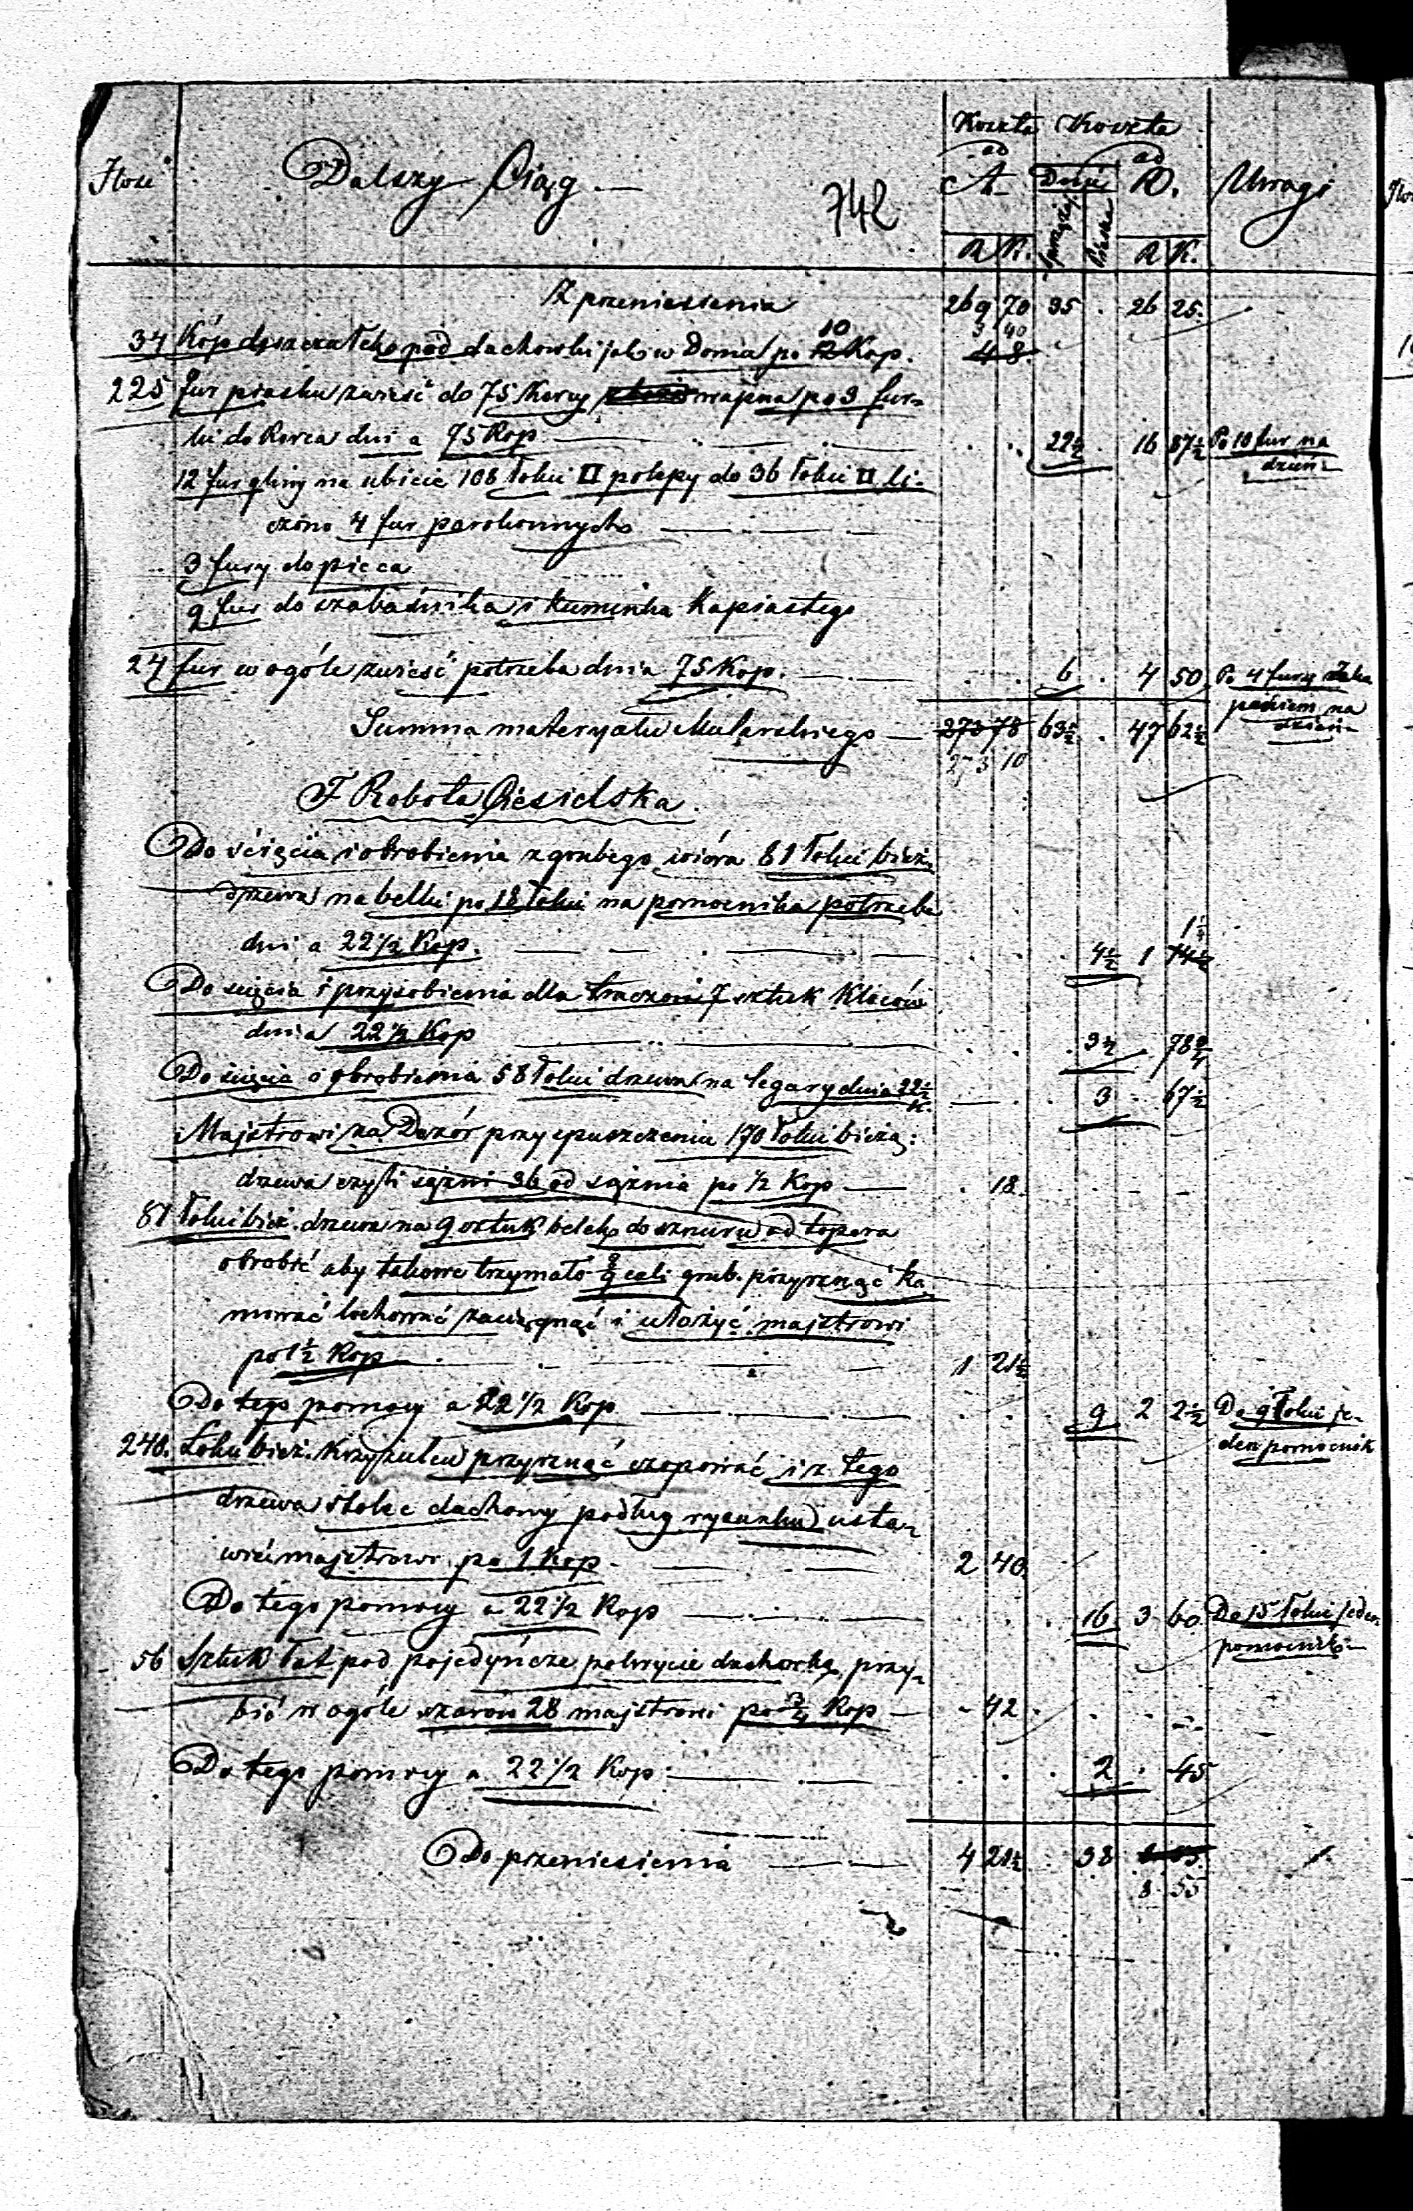 Ilość Dalszy Ciąg 742 Koszta ad A Koszta ad D. Uwagi
Dni
R K. R K.
Z przeniesienia 269 70 35 . 26 25.
3 40
34 Kóp dszczałek pod dachówki jak w Domu po 10 12 Kop. 4 8
225 fur piasku zwieść do 75 Korcy wapna po 3 fur-
ki do Korca dni a 75 Kop 22½ 16 87½ Po 10 fur na
dzień
12 fur gliny na ubicie 108 łokci □ polepy do 36 łokci □ li-
czono 4 fur parokonnych
3 fury do pieca
9 fur do szabaśnika i kuminka Kapiastego
24 fur w ogóle zwieść potrzeba dnia 75 Kop. 6 . 4 50 Po 4 fury
na
dzień
Summa materyału Mularskiego 273 78 63½ . 47 62½
273 10
F Robota Ciesielska.
Do ścięcia i obrobienia z grubego wióra 81 łokci bież.
drzewa na belki po 18 łokci na pomocnika potrzeba
dni a 22 1/2 Kop. 4½ 1 14½
Do ścięcia i przysobienia dla traczów 7 sztuk Kloców
dnia 22 ½ Kop 3½ 78¾
Do ścięcia i obrobienia 58 łokci drzewa na legary dnia 22½ K. 3 67½
Majstrowi za Dozór przy spuszczeniu 170 łokci bieżą:
drzewa czyli sążni 36 od sążnia po ½ Kop 18.
81 łokci bież. drzewa na 9 sztuk belek do sznuru od topora
obrobić aby takowe trzymało 9 cali grub. przyrznąć ka
mować lochować zaciągnąć i ułożyć majstrowi
po 1½ Kop 1 21½
Do tego pomocy a 22 1/2 Kop 9 2 2½ Do 9 łokci je-
den pomocnik
240. Łokci bież. Krzyżulcu przyrznąć czopować i z tego
drzewa stolec dachowy podług rysunku ustaw-
wić majstrowi po 1 Kop. 2 40.
Do tego pomocy a 22 1/2 Kop 16 3 60 Do 15 łokci jeden
pomocnik
56 Sztuk łat pod pojedyńcze pokrycie dachówką przy-
bić w ogóle szarów 28 majstrowi po ¾ Kop 42
Do tego pomocy a 22 1/2 Kop. 2 . 45
Do przeniesienia 4 21½ 38
8 55